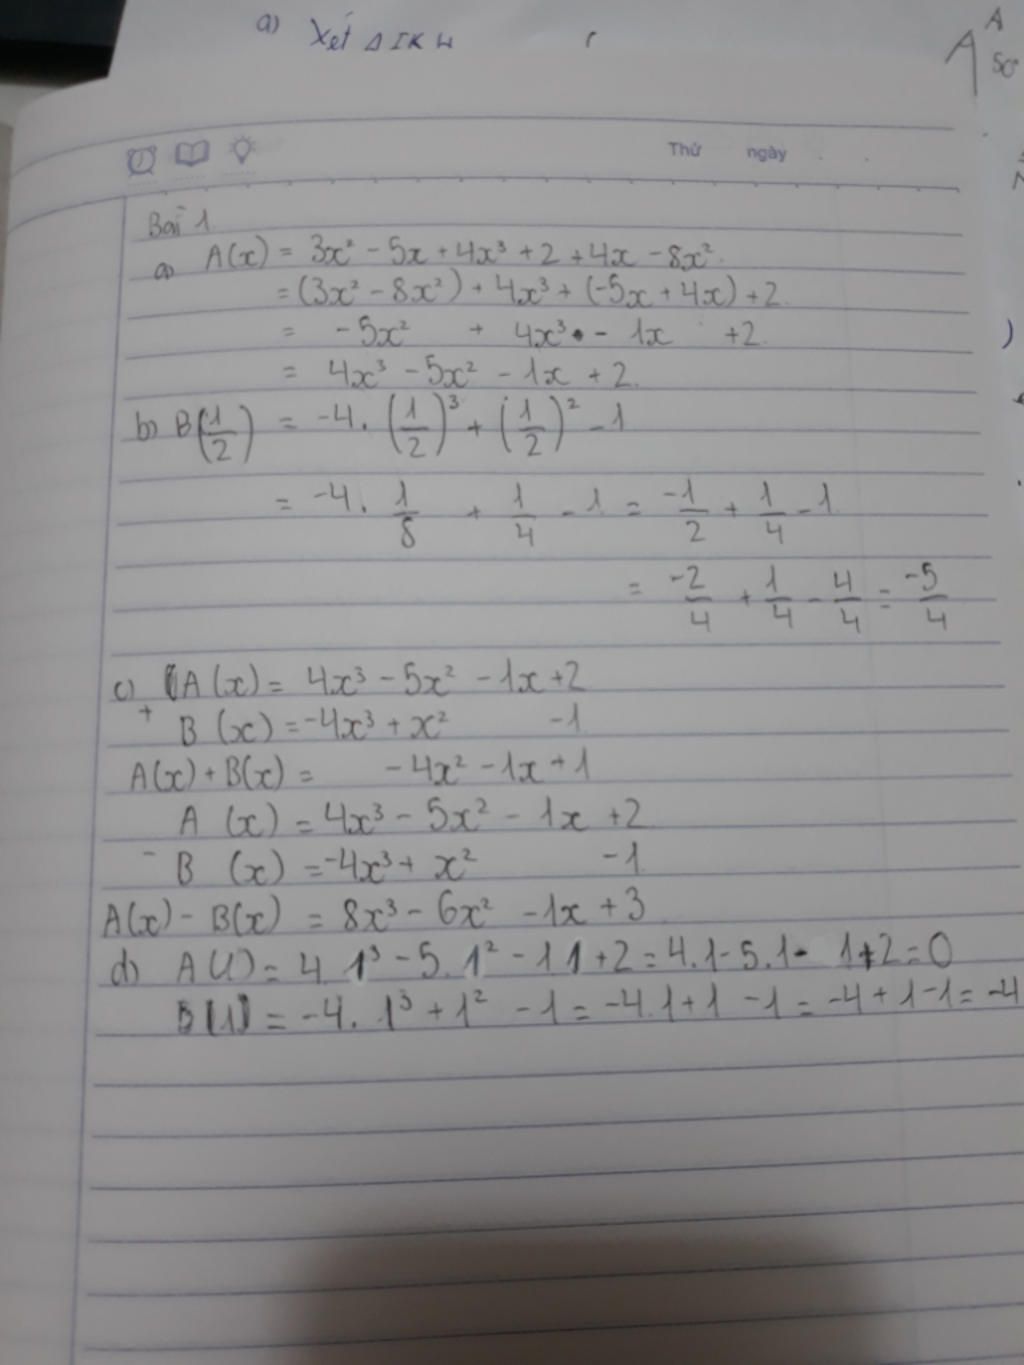 a) Xét Δ IKH
A
A
50°
Thứ ngày
Bài 1
a) A(x) = 3x² - 5x + 4x³ + 2 + 4x - 8x².
= (3x² - 8x²) + 4x³ + (-5x + 4x) + 2.
= -5x² + 4x³ - 1x + 2.
= 4x³ - 5x² - 1x + 2.
b) B(1/2) = -4. (1/2)³ + (1/2)² - 1
= -4. 1/8 + 1/4 - 1 = -1/2 + 1/4 - 1
= -2/4 + 1/4 - 4/4 = -5/4
c) A(x) = 4x³ - 5x² - 1x + 2
+ B(x) = -4x³ + x² - 1
A(x) + B(x) = - 4x² - 1x + 1
A(x) = 4x³ - 5x² - 1x + 2
- B(x) = -4x³ + x² - 1
A(x) - B(x) = 8x³ - 6x² - 1x + 3
d) A(1) = 4.1³ - 5.1² - 1 1 + 2 = 4.1 - 5.1 - 1 + 2 = 0
B(1) = -4. 1³ + 1² - 1 = -4.1 + 1 - 1 = -4 + 1 - 1 = -4